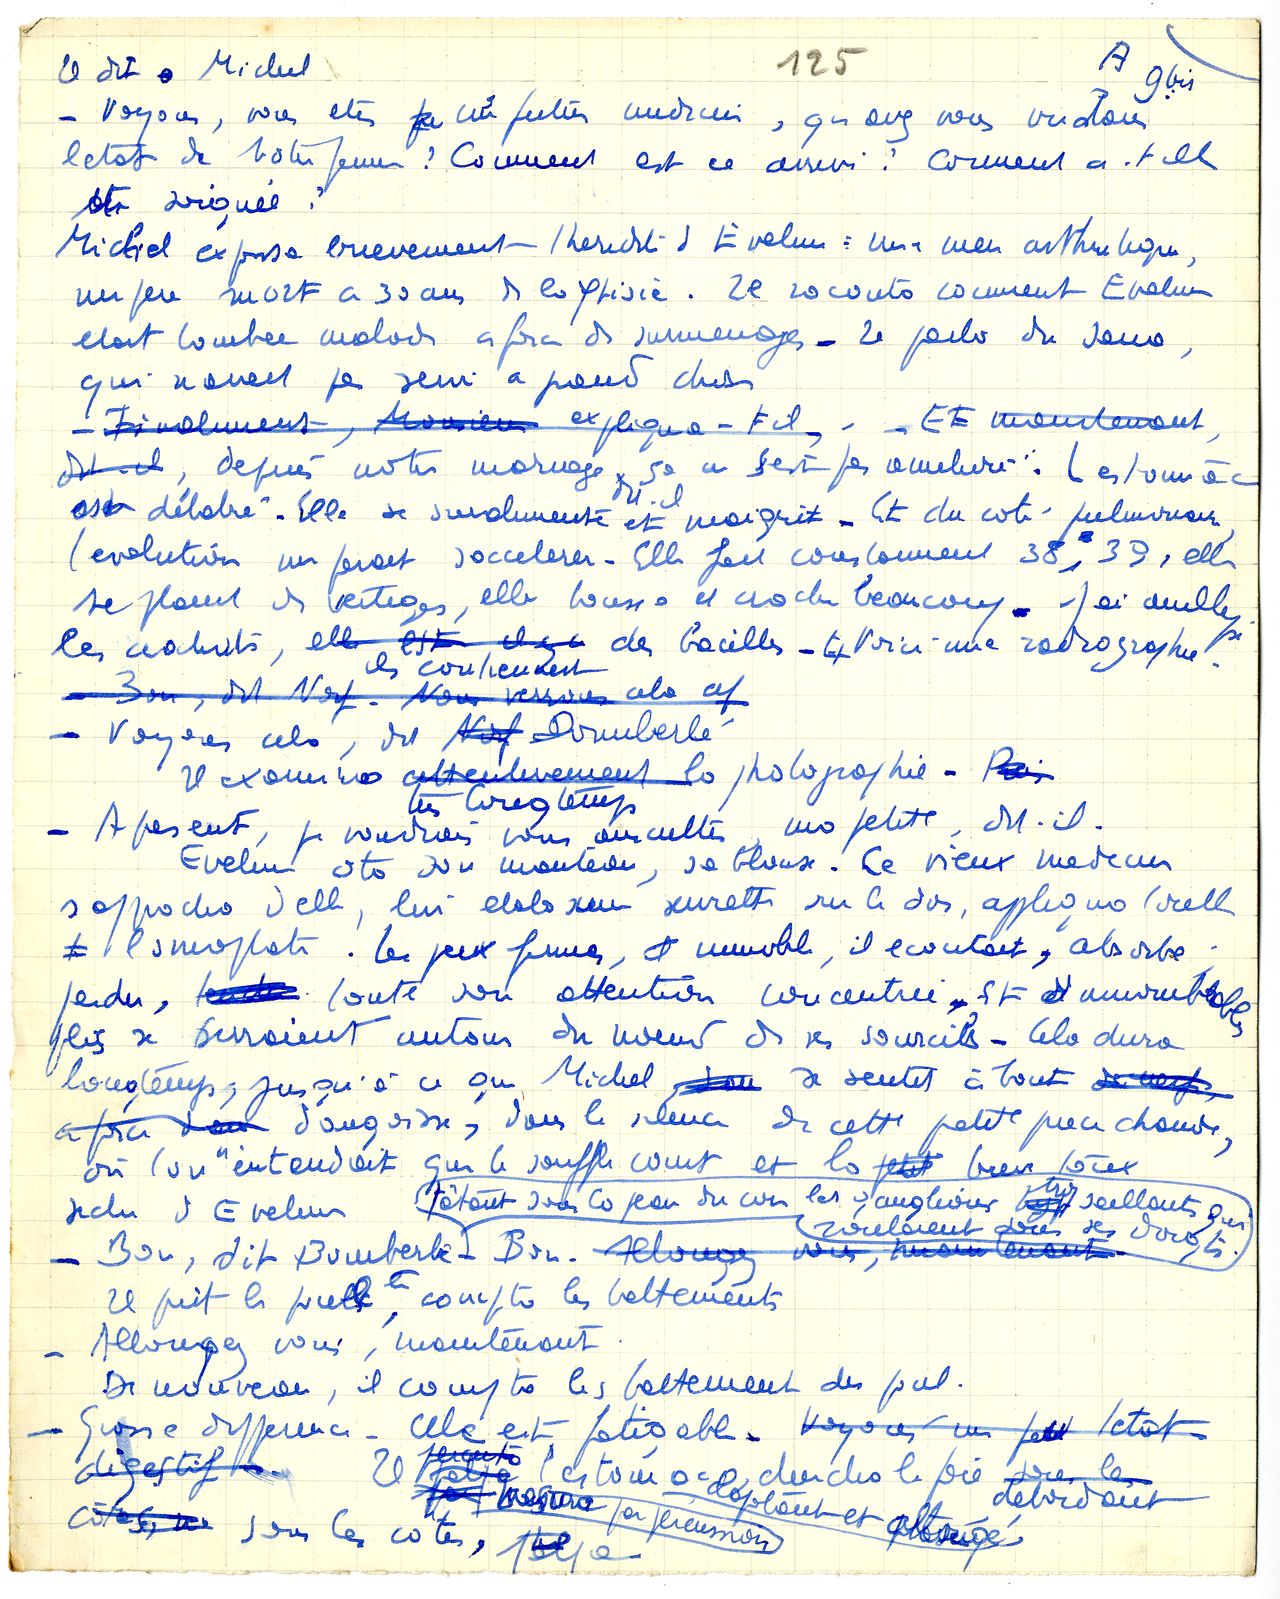 125
A 9bis
Il dit a Michel
– Voyons, vous etes un futur medecin, que avez vous
letat de votre femme ? Comment est ce arrivé ? Comment a-t-elle
ete soignée ?
Michel exposa brievement lheredité d Evelyne : une mere arthritique,
un pere mort a 30 ans de la phtisie. Il raconta comment Evelyne
etait tombee malade a force de surmenage – Il parla du sana,
qui n avait pas servi a grand chose
– Finalement, Monsieur expliqua-t-il, – Et maintenant,
dit-il, depuis notre mariage, ça ne sest pas amelioré. Lestomac
est délabré – Elle se sousalimente et maigrit – Et du coté pulmonaire,
dit-il
levolution me parait saccelerer – Elle fait constamment 38, 39, elle
se plaint de vertiges, elle tousse et crache beaucoup – J ai
les crachats, elle est il y a des bacilles – Et Voici une radiographie.
ils contiennent
– Bon, dit Norf – Nous verrons cela
– Voyons cela, dit Norf Domberlé
Il examina attentivement la photographie – Puis
tres longtemps
– A present, je voudrais vous ausculter, ma petite, dit-il.
Evelyne ota son manteau, sa blouse. Le vieux medecin
sapprocha d elle, lui etala une serviette sur le dos, appliqua loreille
a l omoplate. Les yeux fermes, et immobile, il ecoutait, absorbé,
perdu, toute son attention concentrée, Et d innombrables
plis se serraient autour du noeud de ses sourcils – Cela dura
longtemps, jusqu'à ce que Michel, se sentit à bout de nerfs,
a force d'angoisse, dans le silence de cette petite piece chaude,
où l'on n'entendait que le souffle court et la petit breve toux
seche d Evelyne tâtant sous la peau du cou les ganglions très saillants qui
roulaient sous ses doigts.
– Bon, dit Domberlé – Bon. Allongez vous, maintenant –
Il prit le pouls, compta les battements
– Allongez vous, maintenant.
De nouveau, il compta les battement du poul.
– Grosse difference – Elle est fatigable – Voyons un peu letat
digestif – Il palpa l'estomac, chercha le foie sous les
percuta
mesura par percussion
deplaient et
debordant
côtes, sous les cotes, palpa